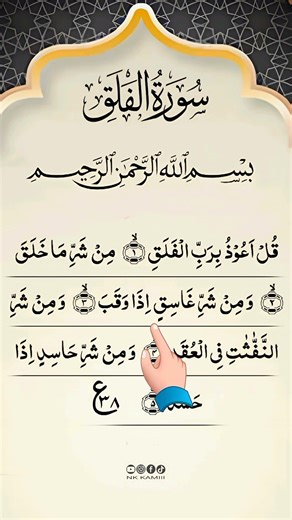 سُوْرَةُ الْفَلَقِ
بِسْمِ اللهِ الرَّحْمٰنِ الرَّحِيْمِ
قُلْ اَعُوْذُ بِرَبِّ الْفَلَقِ ۝١ مِنْ شَرِّ مَا خَلَقَ
۝٢ وَمِنْ شَرِّ غَاسِقٍ اِذَا وَقَبَ ۝٣ وَمِنْ شَرِّ
النَّفّٰثٰتِ فِى الْعُقَدِ ۝٤ وَمِنْ شَرِّ حَاسِدٍ اِذَا
حَسَدَ ۝٥ ع ٣٨
NK KAMIII